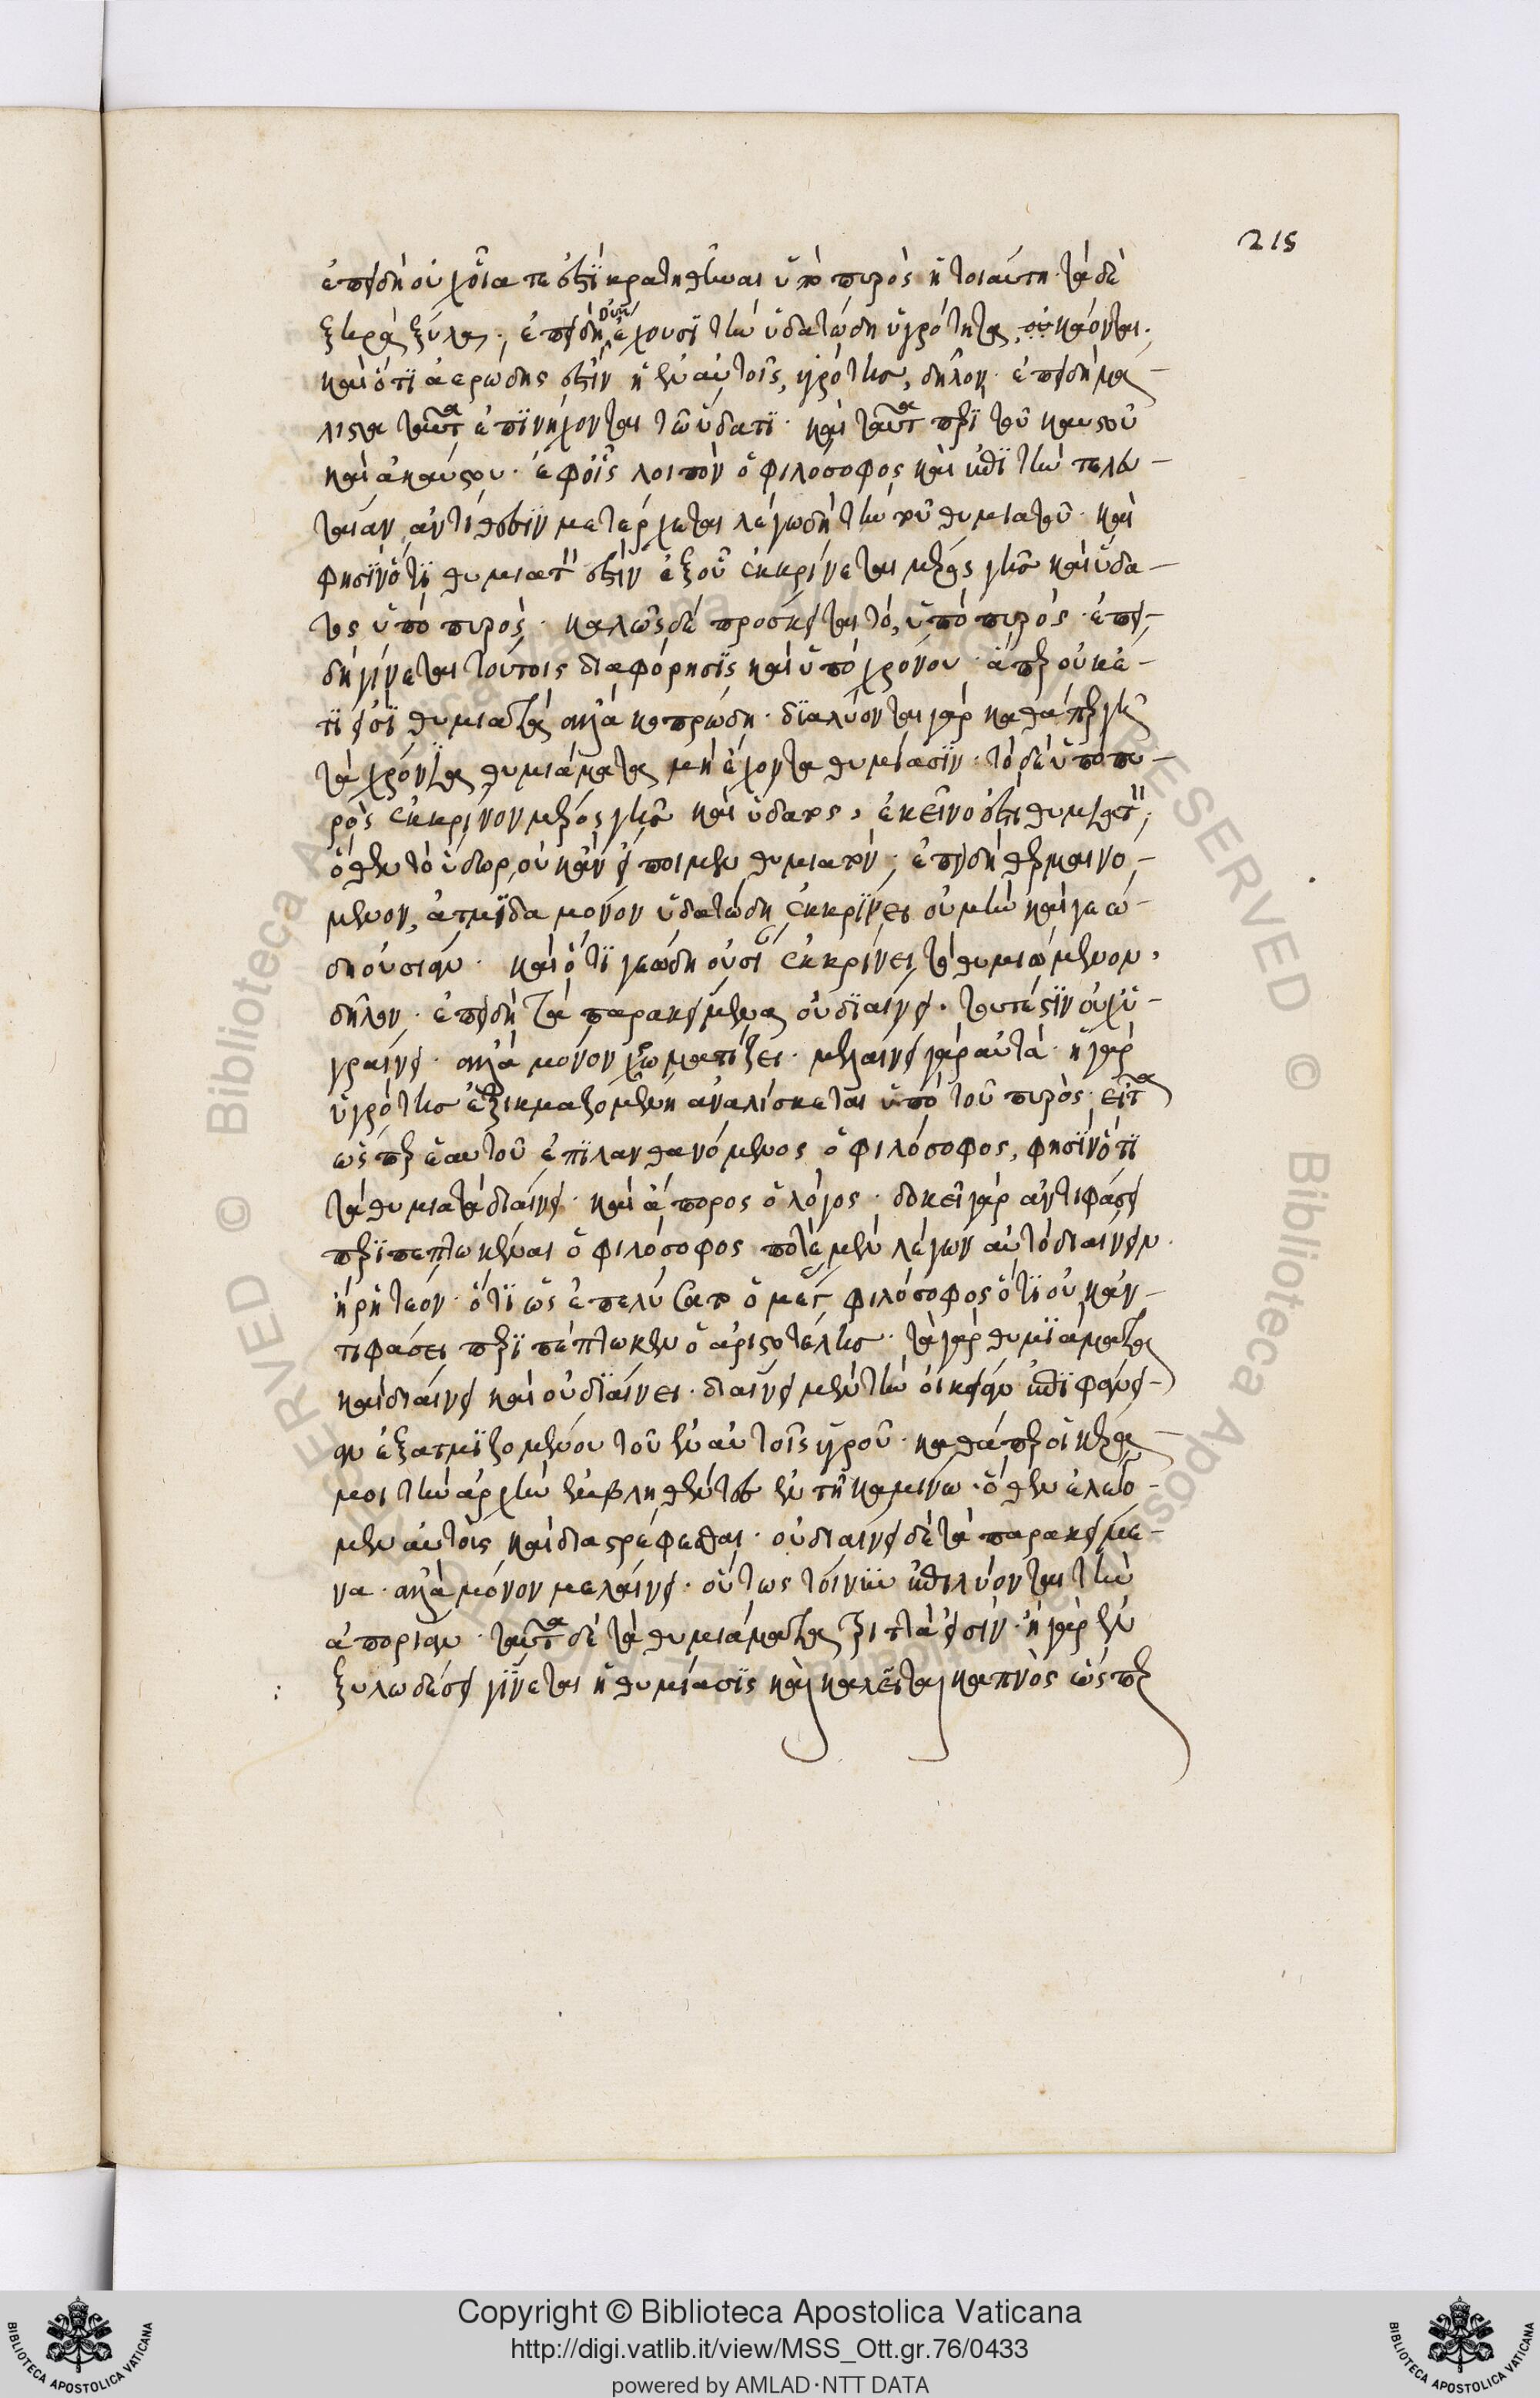 215
ἐπειδὴ οὐχ οἷα τε ἐστὶ κρατηθῆναι ὑπὸ πυρὸς ἡ τοιαύτη· τὰ δὲ
ξηρὰ ξύλα, ἐπειδὴ οὐκ ἔχουσι τὴν ὑδατώδη ὑγρότητα, καίονται.
καὶ ὅτι ἀερώδης ἐστὶν ἡ ἐν αὐτοῖς ὑγρότης, δῆλον· ἐπειδὴ μα-
λιστα ταῦτα ἐπινήχονται τῷ ὕδατι· καὶ ταῦτα περὶ τοῦ καυστοῦ
καὶ ἀκαύστου· ἐφ οἷς λοιπὸν ὁ φιλόσοφος καὶ ἐπὶ τὴν τελευ-
ταίαν ἀντίθεσιν μετέρχεται λέγω δὴ τὴν τοῦ θυμιατοῦ· καὶ
φησὶν ὅτι θυμιατόν ἐστιν ἐξ οὗ ἐκκρίνεται μέρος γῆς καὶ ὕδα-
τος ὑπὸ πυρός· καλῶς δὲ πρόσκειται τὸ, ὑπὸ πυρός· ἐπει-
δὴ γίνεται τούτοις διαφόρησις καὶ ὑπὸ χρόνου· ἅπερ οὐκέ-
τι εἰσὶ θυμιατὰ ἀλλὰ κοπρώδη· διαλύονται γὰρ καθάπερ γῆ
τὰ χρόνια θυμιάματα μὴ ἔχοντα θυμίασιν· τὸ δὲ ὑπὸ πυ-
ρὸς ἐκκρίνον μέρος γῆς καὶ ὕδατος, ἐκεῖνο ἐστὶ θυμιατόν,
ὅθεν τὸ ὕδωρ, οὐκ ἂν εἴποιμεν θυμιατὸν, ἐπειδὴ θερμαινό-
μενον, ἀτμίδα μόνον ὑδατώδη ἐκκρίνει οὐ μὴν καὶ γεώ-
δη οὐσίαν· καὶ ὅτι γεώδη οὐσίαν ἐκκρίνει τὸ θυμιώμενον,
δῆλον· ἐπειδὴ τὰ παρακείμενα οὐ διαίνει· τουτέστιν οὐχ ὑ-
γραίνει· ἀλλὰ μόνον χρωματίζει· μελαίνει γὰρ αὐτά· ἡ γὰρ
ὑγρότης ἐξικμαζομένη ἀναλίσκεται ὑπὸ τοῦ πυρός· εἶτα
ὥσπερ ἑαυτοῦ ἐπιλανθανόμενος ὁ φιλόσοφος, φησὶν ὅτι
τὰ θυμιατὰ διαίνει· καὶ ἄπορος ὁ λόγος· δοκεῖ γὰρ ἀντιφάσει
περιπεπτωκέναι ὁ φιλόσοφος ποτὲ μὲν λέγων αὐτὸ διαίνειν·
ἢ ῥητέον· ὅτι ὡς ἐπελύσατο ὁ μέγας φιλόσοφος ὅτι οὐκ ἀν-
τιφάσει περιπέπτωκεν ὁ ἀριστοτέλης· τὰ γὰρ θυμιάματα
καὶ διαίνει καὶ οὐ διαίνει· διαίνει μὲν τὴν οἰκείαν ἐπιφάνει-
αν ἐξατμιζομένου τοῦ ἐν αὐτοῖς ὑγροῦ· καθάπερ οἱ κέρα-
μοι τὴν ἀρχὴν ἐμβληθέντες ἐν τῇ καμίνῳ· ὅθεν ἐλέγο-
μεν αὐτοῖς καὶ διαστρέφεσθαι· οὐ διαίνει δὲ τὰ παρακείμε-
να· ἀλλὰ μόνον μελαίνει· οὕτως τοίνυν ἐπιλύονται τὴν
ἀπορίαν· ταῦτα δὲ τὰ θυμιάματα τριττά εἰσιν· ἢ γὰρ ἐν
ξυλώδεσι γίνεται ἡ θυμίασις καὶ καλεῖται καπνὸς ὥσπερ
Copyright © Biblioteca Apostolica Vaticana
http://digi.vatlib.it/view/MSS_Ott.gr.76/0433
powered by AMLAD·NTT DATA